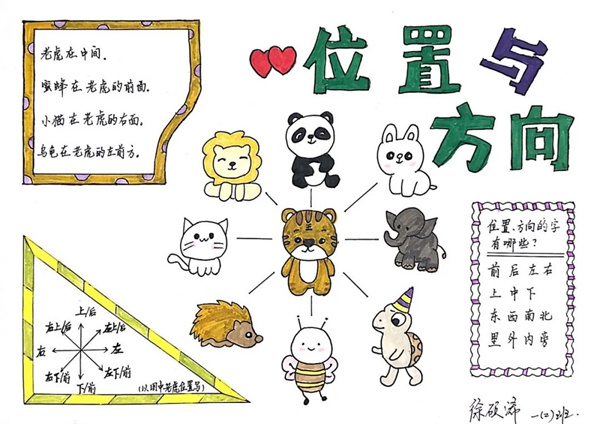 位置与
方向
老虎在中间.
蜜蜂在老虎的前面.
小猫在老虎的右面.
乌龟在老虎的左前方.
位置、方向的字
有哪些?
前后左右
上中下
东西南北
里外内旁
上/后
右上/后
左上/后
右
左
右下/前
左下/前
下/前
(以图中老虎位置写)
徐硕沛 一(2)班.